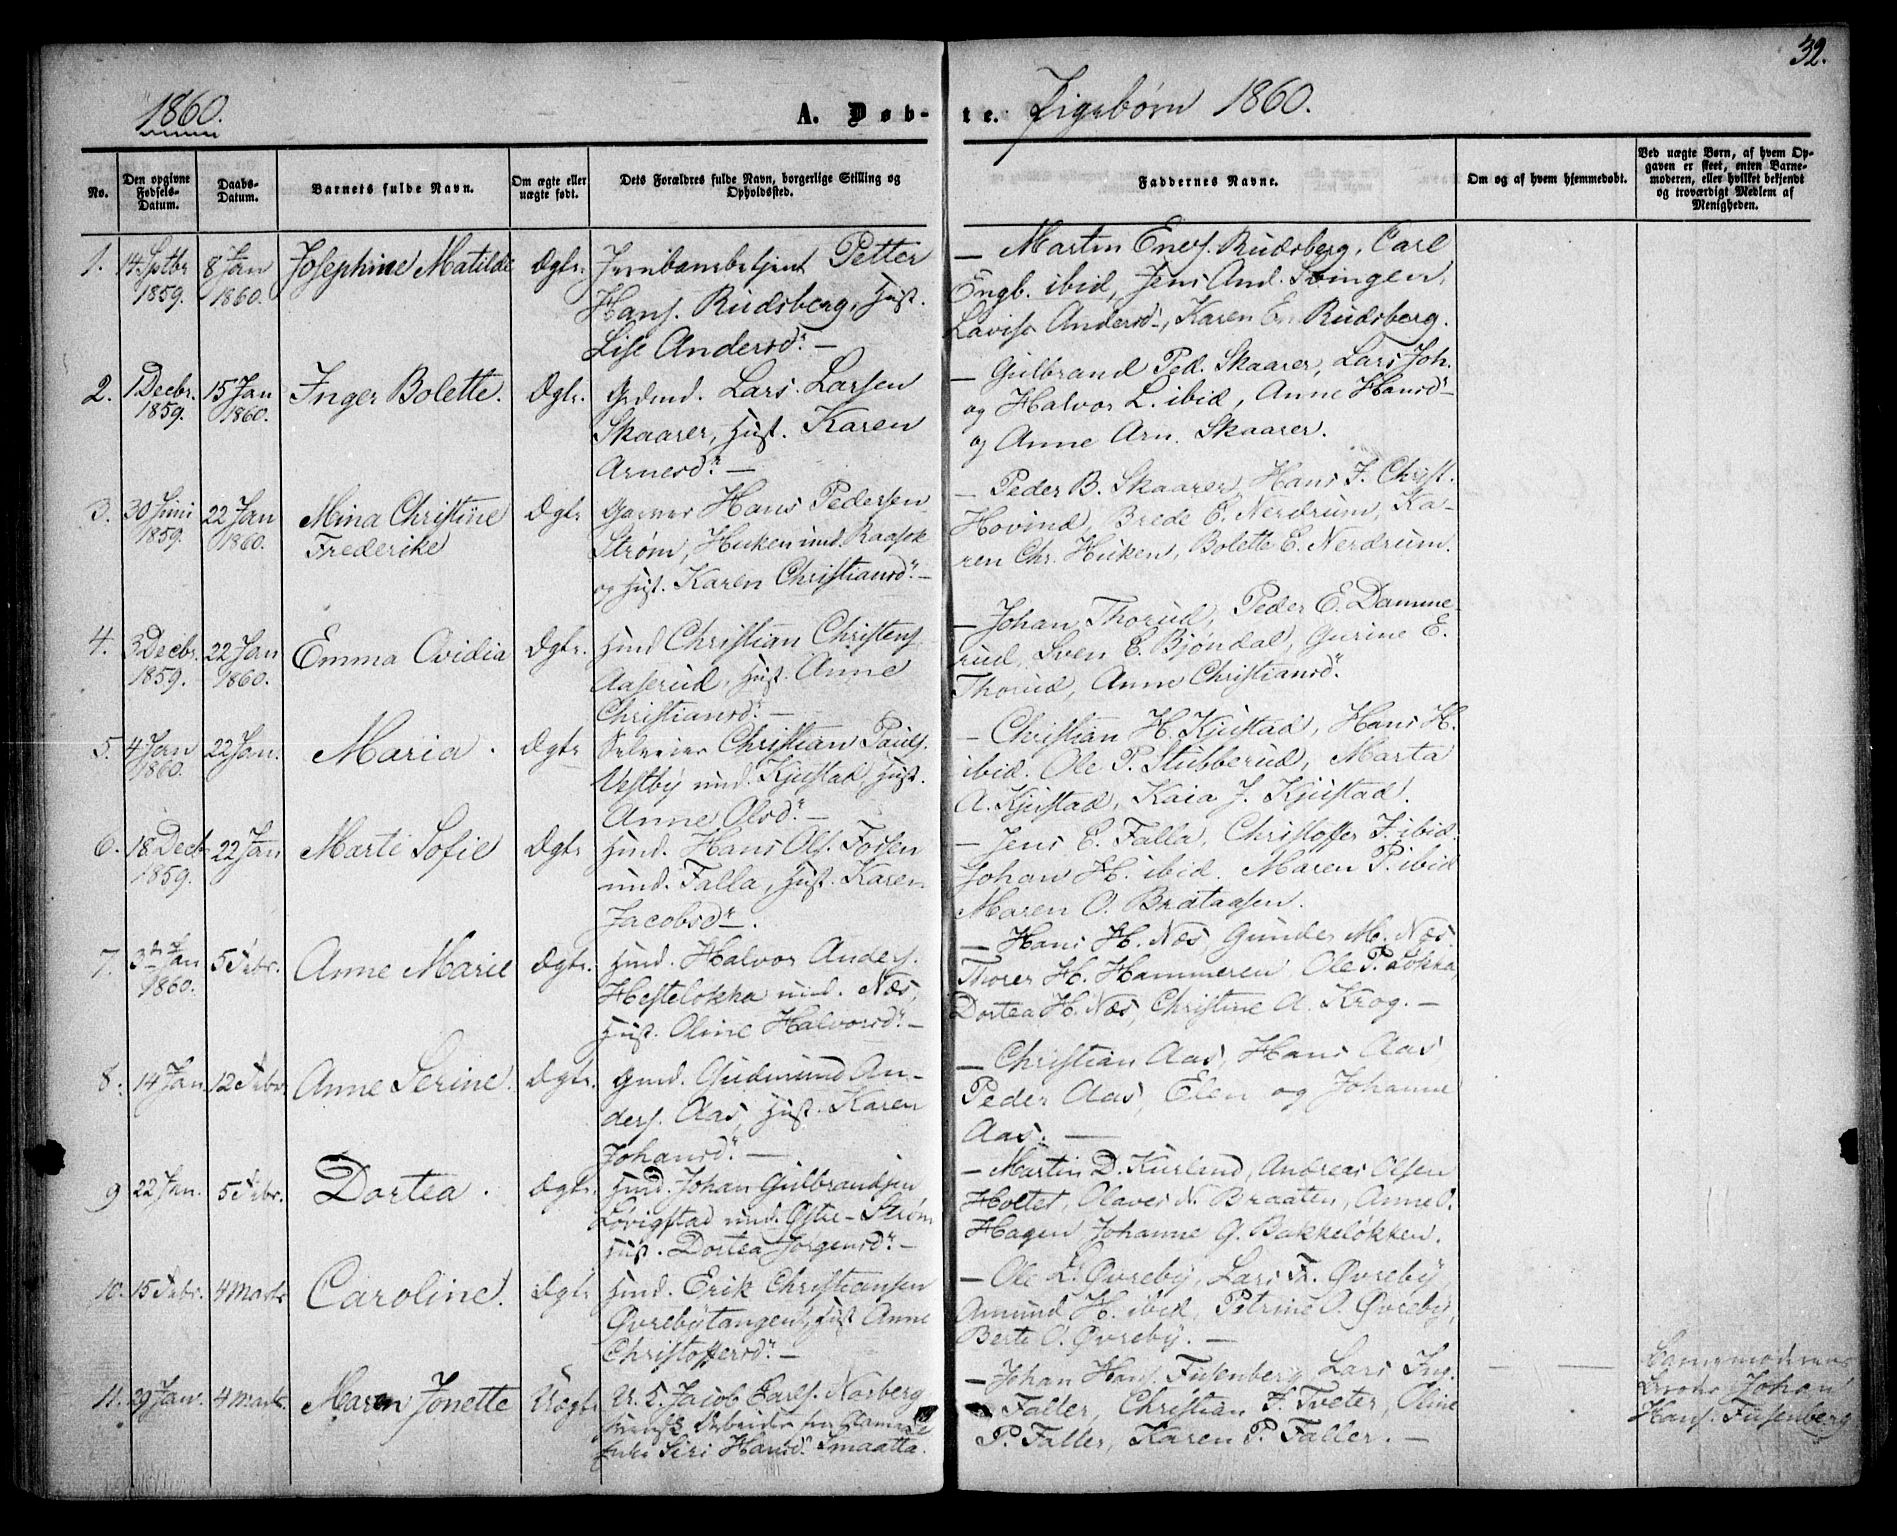 32.
1860.
A. Døb-
te.
Pigebørn 1860.
No.
Den opgivne Fødsels-Datum.
Daabs-Datum.
Barnets fulde Navn.
Om ægte eller uægte født.
Dets Forældres fulde Navn, borgerlige Stilling og Opholdssted.
Faddernes Navne.
Om og af hvem hjemmedøbt.
Ved uægte Børn, af hvem Opgaven er skeet, enten Barnemoderen, eller hvilket bekjendt og troværdigt Medlem af Menigheden.
1. 14 Sptbr 1859. 8 Jan 1860. Josephine Matilde Ægte.
Jernbanebetjent Petter
Hans. Rudsberg, Hust.
Lise Andersd. —
— Martin Enes. Rudsberg, Carl
Engb. ibid, Jens And. Svingen,
Lovise Andersd, Karen En Rudsberg.
2. 1 Decbr. 1859. 15 Jan 1860. Inger Bolette. Ægte.
Grdmd. Lars Larsen
Skaarer, Hust. Karen
Arnesd. —
— Gulbrand Ped. Skaarer, Lars Joh.
og Halvor L. ibid, Anne Hansd
og Anne Arn. Skaarer.
3. 30 Juni 1859. 22 Jan 1860. Mina Christine Frederike Ægte
Garver Hans Pedersen
Strøm, Huken und. Raasok
og Hust. Karen Christiansd. —
— Peder B. Skaarer, Hans J. Christ.
Hovind, Brede E. Nerdrum, Ka-
ren Chr. Huken, Bolette E. Nerdrum.
4. 3 Decbr. 1859. 22 Jan 1860. Emma Ovidia Ægte.
Husmd Christian Christens.
Aaserud, Hust. Anne
Christiansd. —
— Johan Thorud, Peder E. Damme-
rud, Sven E. Bjøndal, Gurine E.
Thorud, Anne Christiansd.
5. 4 Jan 1860. 22 Jan. Maria. Ægte
Selveier Christian Pauls.
Vestby und. Kjustad, Hust.
Anne Olsd. —
— Christian H. Kjustad, Hans H.
ibid. Ole P. Stubberud, Marta
A. Kjustad, Kaia J. Kjustad.
6. 18 Decbr 1859. 22 Jan Marte Sofie Ægte
Husmd. Hans Ols. Fossen
und. Falla, Hust. Karen
Jacobsd. —
— Jens E. Falla, Christoffer J. ibid.
Johan H. ibid. Maren P. ibid
Maren O. Brataasen.
7. 3 Jan 1860. 5 Febr. Anne Marie Ægte.
Husmd. Halvor Anders.
Hestelokka und. Næs,
Hust. Oline Halvorsd. —
— Hans H. Næs, Gunder M. Næs.
Thorer H. Hammeren, Ole P. Løkka,
Dortea H. Næs, Christine A. Krog. —
8. 14 Jan. 12 Febr. Anne Serine. Ægte.
Grmd. Gudmund An-
ders. Aas, Hust. Karen
Johansd. —
— Christian Aas, Hans Aas
Peder Aas, Elen og Johanne
Aas. —
9 22 Jan. 5 Febr. Dortea. Ægte.
Husmd. Johan Gulbrandsen
Lovigstad und. Østre-Strøm
Hust. Dortea Jørgensd. —
— Martin D. Kurland, Andreas Olsen
Holtet, Olaves N. Braaten, Anne O.
Hagen Johanne G. Bakkeløkken.
10. 15 Febr. 4 Marts Caroline. Ægte
Husmd. Erik Christiansen
Øvrebytangen, Hust Anne
Christoffersd. —
— Ole L. Øvreby, Lars Fr. Øvreby
Amund H. ibid, Petrine O. Øvreby,
Berte O. Øvreby. —
11. 29 Jan. 4 Marts Maren Jonette Uægte
U. K. Jacob Carls. Norberg
svensk Arbeider
Pike Siri Hansd. Smaatta.
— Johan Hans. Fusenberg Lars Ing.
Faller, Christian F. Tveter, Oline
P. Faller, Karen P. Faller. —
Barnemoderens
Broder Johan
Hans. Fusenberg